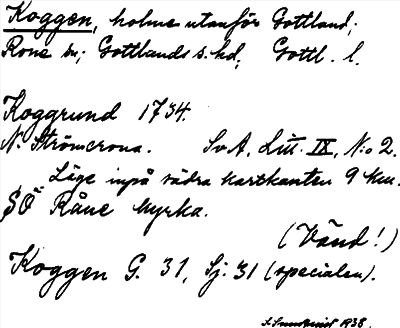 Koggen, holme utanför Gottland;
Rone sn; Gottlands s. hd, Gottl. l.
Koggrund 1734.
N. Strömcrona. SvA, Litt. IX, N:o 2.
Läge inpå södra kartkanten 9 km.
SÖ Råne kyrka.
(Vänd!)
Koggen G. 31, Sj. 31 (specialen).
1938.